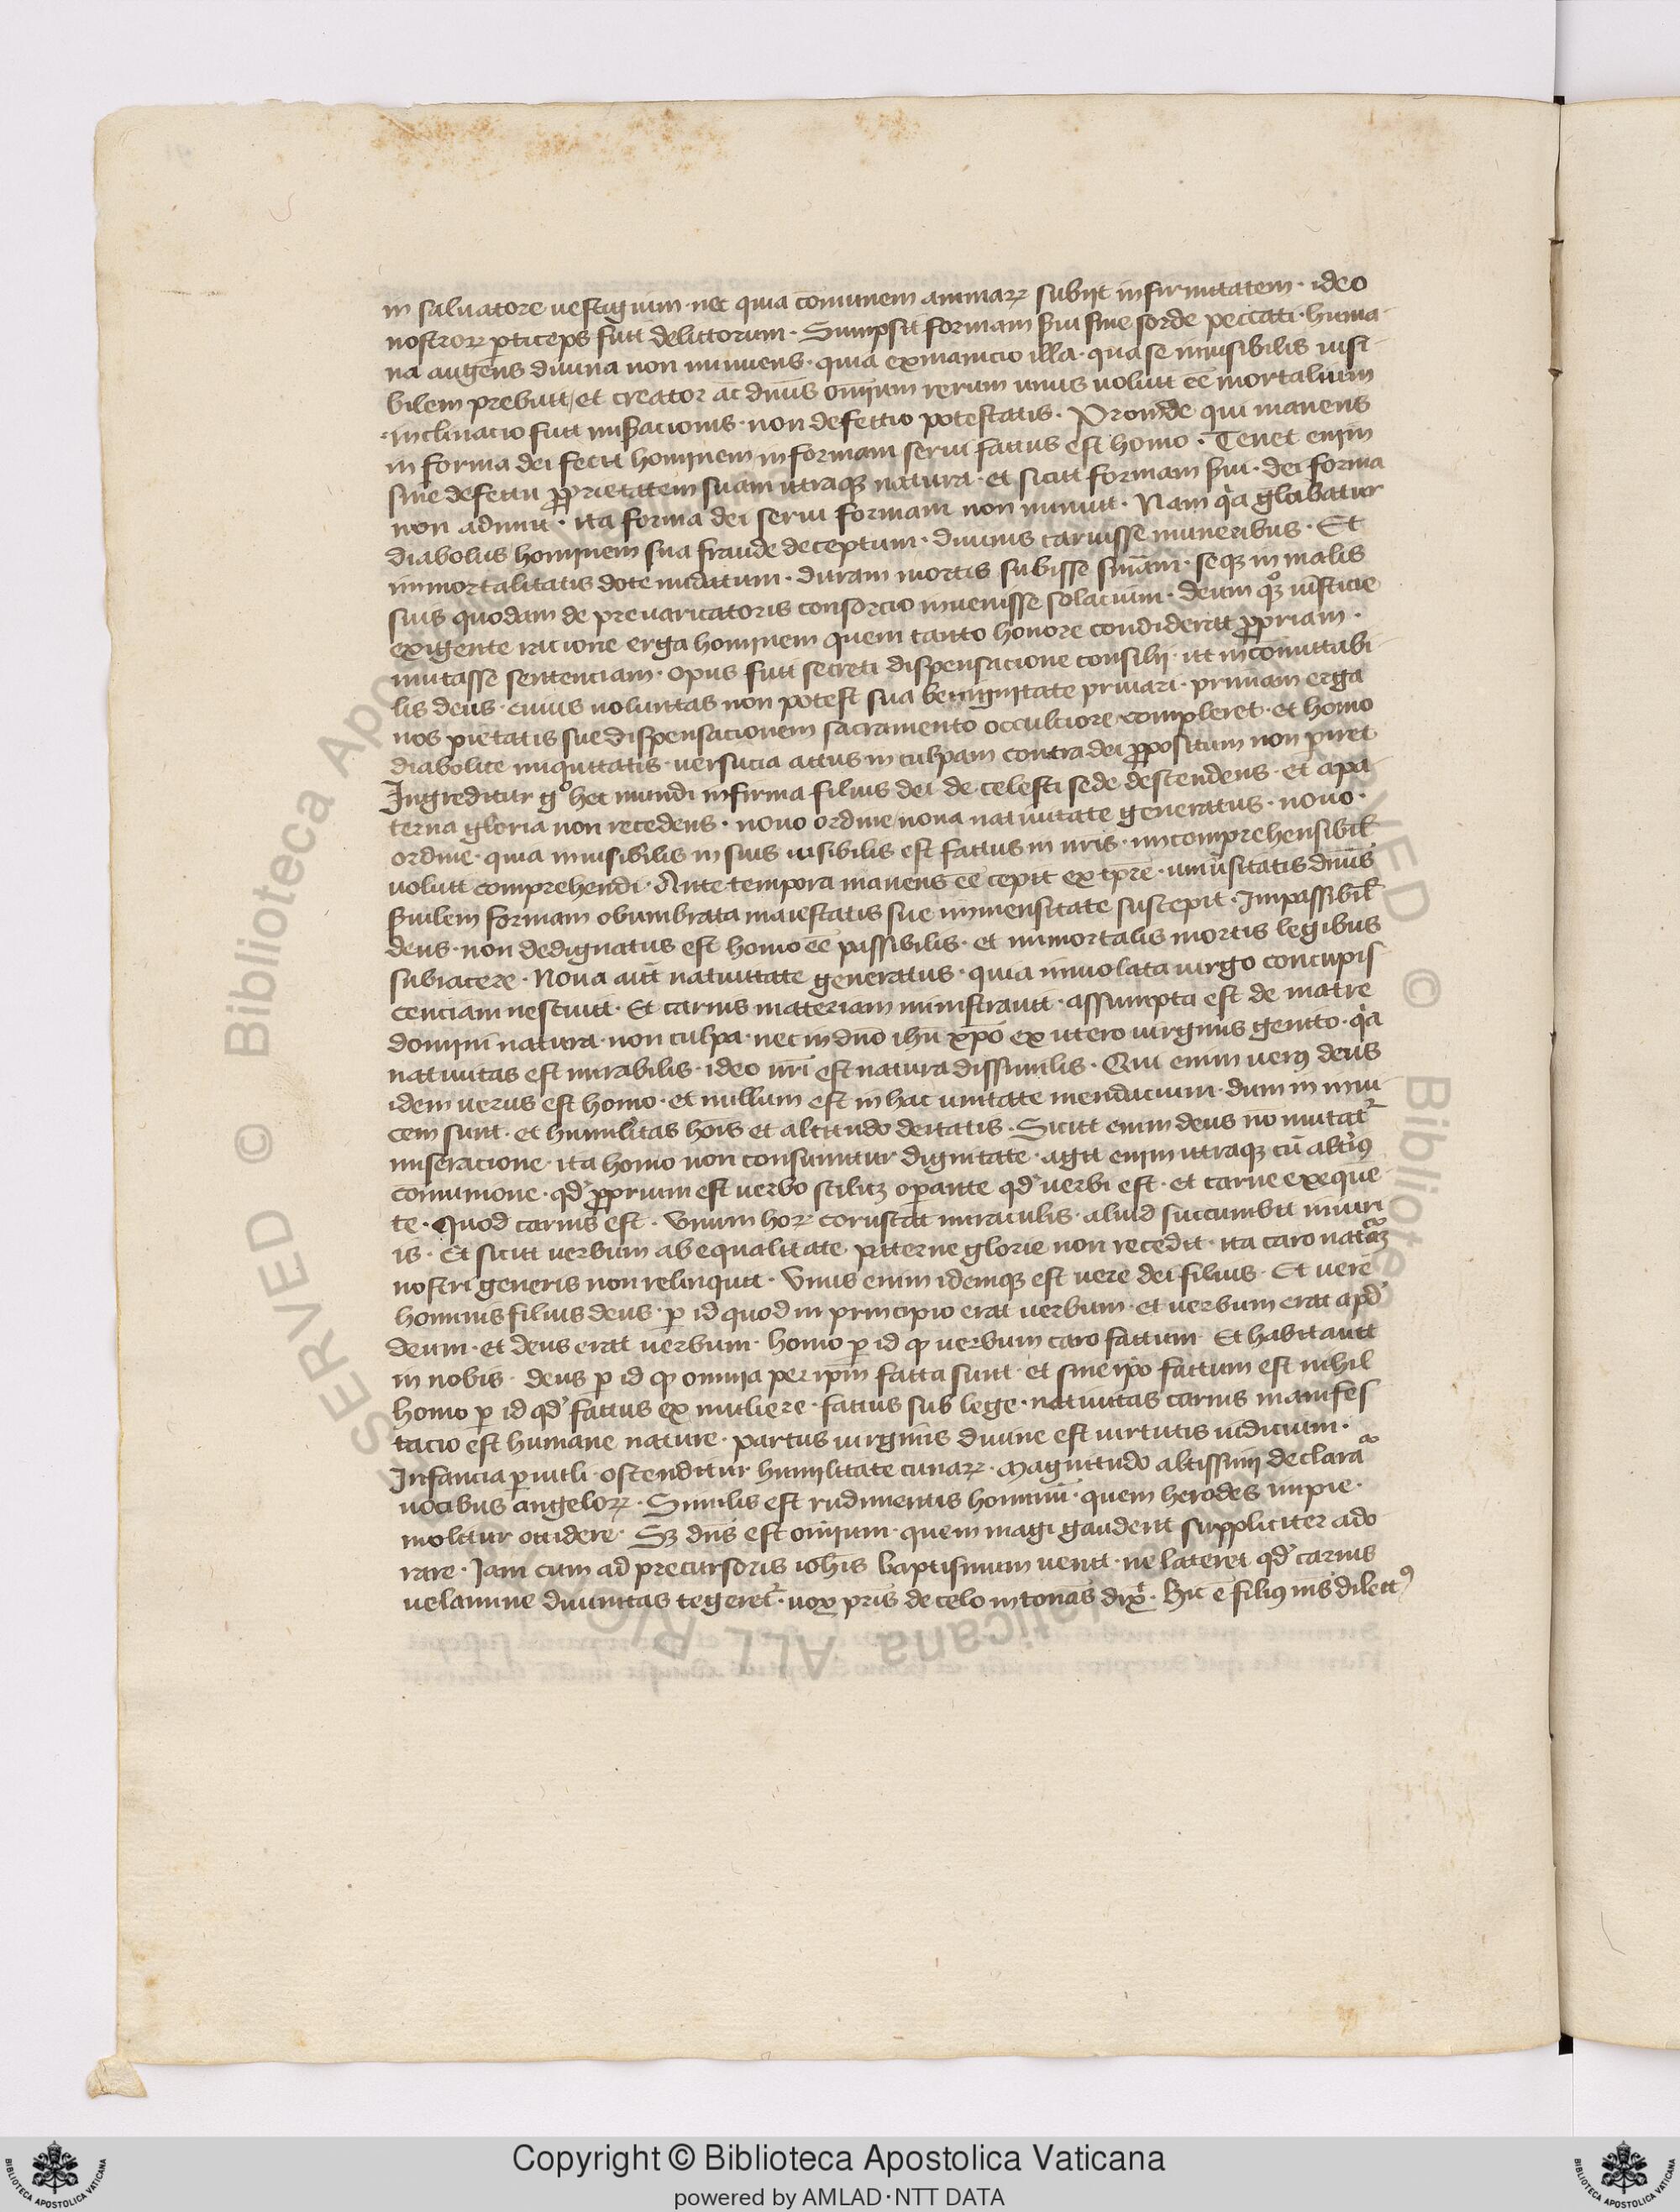 in saluatore uestigium · nec quia cōmunem animaꝝ subijt infirmitatem · ideo
nostroꝝ ꝑticeps fuit delictorum · Sumpsit formam ẜui sine sorde peccati · huma
na augens diuina non minuens · quia exinanicio illa · qua se inuisibilis uisi-
bilem prebuit / et creator ac dn̄us omnium rerum unus uoluit ēē mortalium
· inclinacio fuit miẜacionis · non defectio potestatis · Proinde qui manens
in forma dei fecit hominem in formam serui factus est homo · Tenet enim
sine defectu ꝓprietatem suam utraqꝫ natura · et sicut formam ẜui · dei forma
non adimit · ita forma dei serui formam non minuit · Nam qͥa gl̄abatur
diabolus hominem sua fraude deceptum · diuinis caruisse muneribus · Et
immortalitatis dote nudatum · duram mortis subisse sn̄iam · seqꝫ in malis
suis quodam de preuaricatoris consorcio inuenisse solacium · deum qꝫͦ iusticie
exigente racione erga hominem quem tanto honore condiderat ꝓpriam ·
mutasse sentenciam · opus fuit secreti dispensacione consilij · ut incōmutabi
lis deus · cuius uoluntas non potest sua benignitate priuari · primam erga
nos pietatis sue dispensacionem sacramento occulciore compleret · et homo
diabolice iniquitatis · uersucia actus in culpam contra dei ꝓpositum non piret
Ingreditur gͦ hec mundi infirma filius dei de celesti sede descendens · et a pa
terna gloria non recedens · nouo ordine / noua natiuitate generatus · nouo ·
ordine · quia inuisibilis in suis uisibilis est factus in nr̄is · incomprehensibił
uoluit comprehendi · Ante tempora manens ēē cepit ex tp̄re · uniu̇sitatis dn̄us
ẜuilem formam obumbrata maiestatis sue immensitate suscepit · Impassibił
deus · non dedignatus est homo ēē passibilis · et immortalis mortis legibus
subiacere · Noua aūt natiuitate generatus · quia inuiolata uirgo concupis
cenciam nesciuit · Et carnis materiam ministrauit · assumpta est de matre
domini natura · non culpa · nec in dn̄o ihū xp̄o ex utero uirginis genito · qͥa
natiuitas est mirabilis · ideo nr̄i est natura dissimilis · Qui enim uerꝰ deus
idem uerus est homo · et nullum est in hac unitate mendacium · dum in inui
cem sunt · et humil̓itas hoīs et altitudo deitatis · Sicut enim deus nō mutat᷑
miseracione · ita homo non consumitur dignitate · agit enim utraqꝫ cū altͥiꝰ
comunione · qd̓ ꝓprium est uerbo scilicꝫ oꝑante qd̓ uerbi est · et carne exequē
te · Quod carnis est · Vnum hoꝝ coruscat miraculis · aliud succumbit iniuri
is · Et sicut uerbum ab equalitate paterne glorie non recedit · ita caro natᷓaꝫ
nostri generis non relinquit · Vnus enim idemqꝫ est uere dei filius · Et uere
hominis filius deus · ꝑ id quod in principio erat uerbum · et uerbum erat apd̓
deum · et deus erat uerbum · homo ꝑ id ꝙ uerbum caro factum · Et habitauit
in nobis · deus ꝑ id ꝙ omnia per ip̄m facta sunt · et sine ip̄o factum est nihil
homo ꝑ id qd̓ factus ex muliere · factus sub lege · natiuitas carnis manifes
tacio est humane nature · partus uirginis diuine est uirtutis iudicium ·
Infancia ꝑuuli · ostenditur humilitate cunaꝝ · Magnitudo altissimi declaraᷓ
uocibus angeloꝝ · Similis est rudimentis hominū · quem herodes impie ·
molitur occidere · Sꝫ dn̄s est omnium · quem magi gaudent suppliciter ado
rare · Iam cum ad precursoris ioh̄is baptismum uenit · ne lateret qd̓ carnis
uelamine diuinitas tegeret᷑ · uox pr̄is de celo intonās dixͭ · Hic ē filiꝰ m̄s dilectꝰ
Copyright © Biblioteca Apostolica Vaticana
powered by AMLAD·NTT DATA